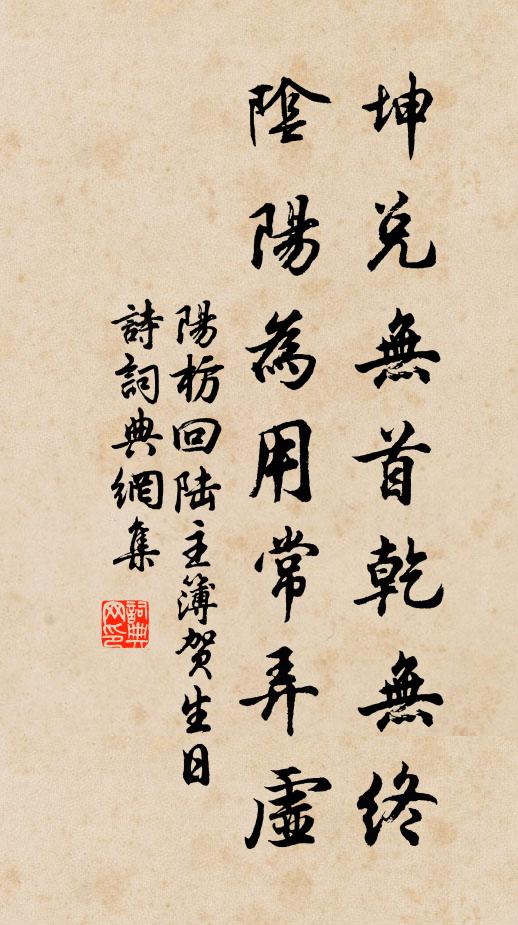 坤兑無首乾無終
陰陽為用常弄虛
陽枋回陆主簿贺生日
詩詞典網集
詞典网印